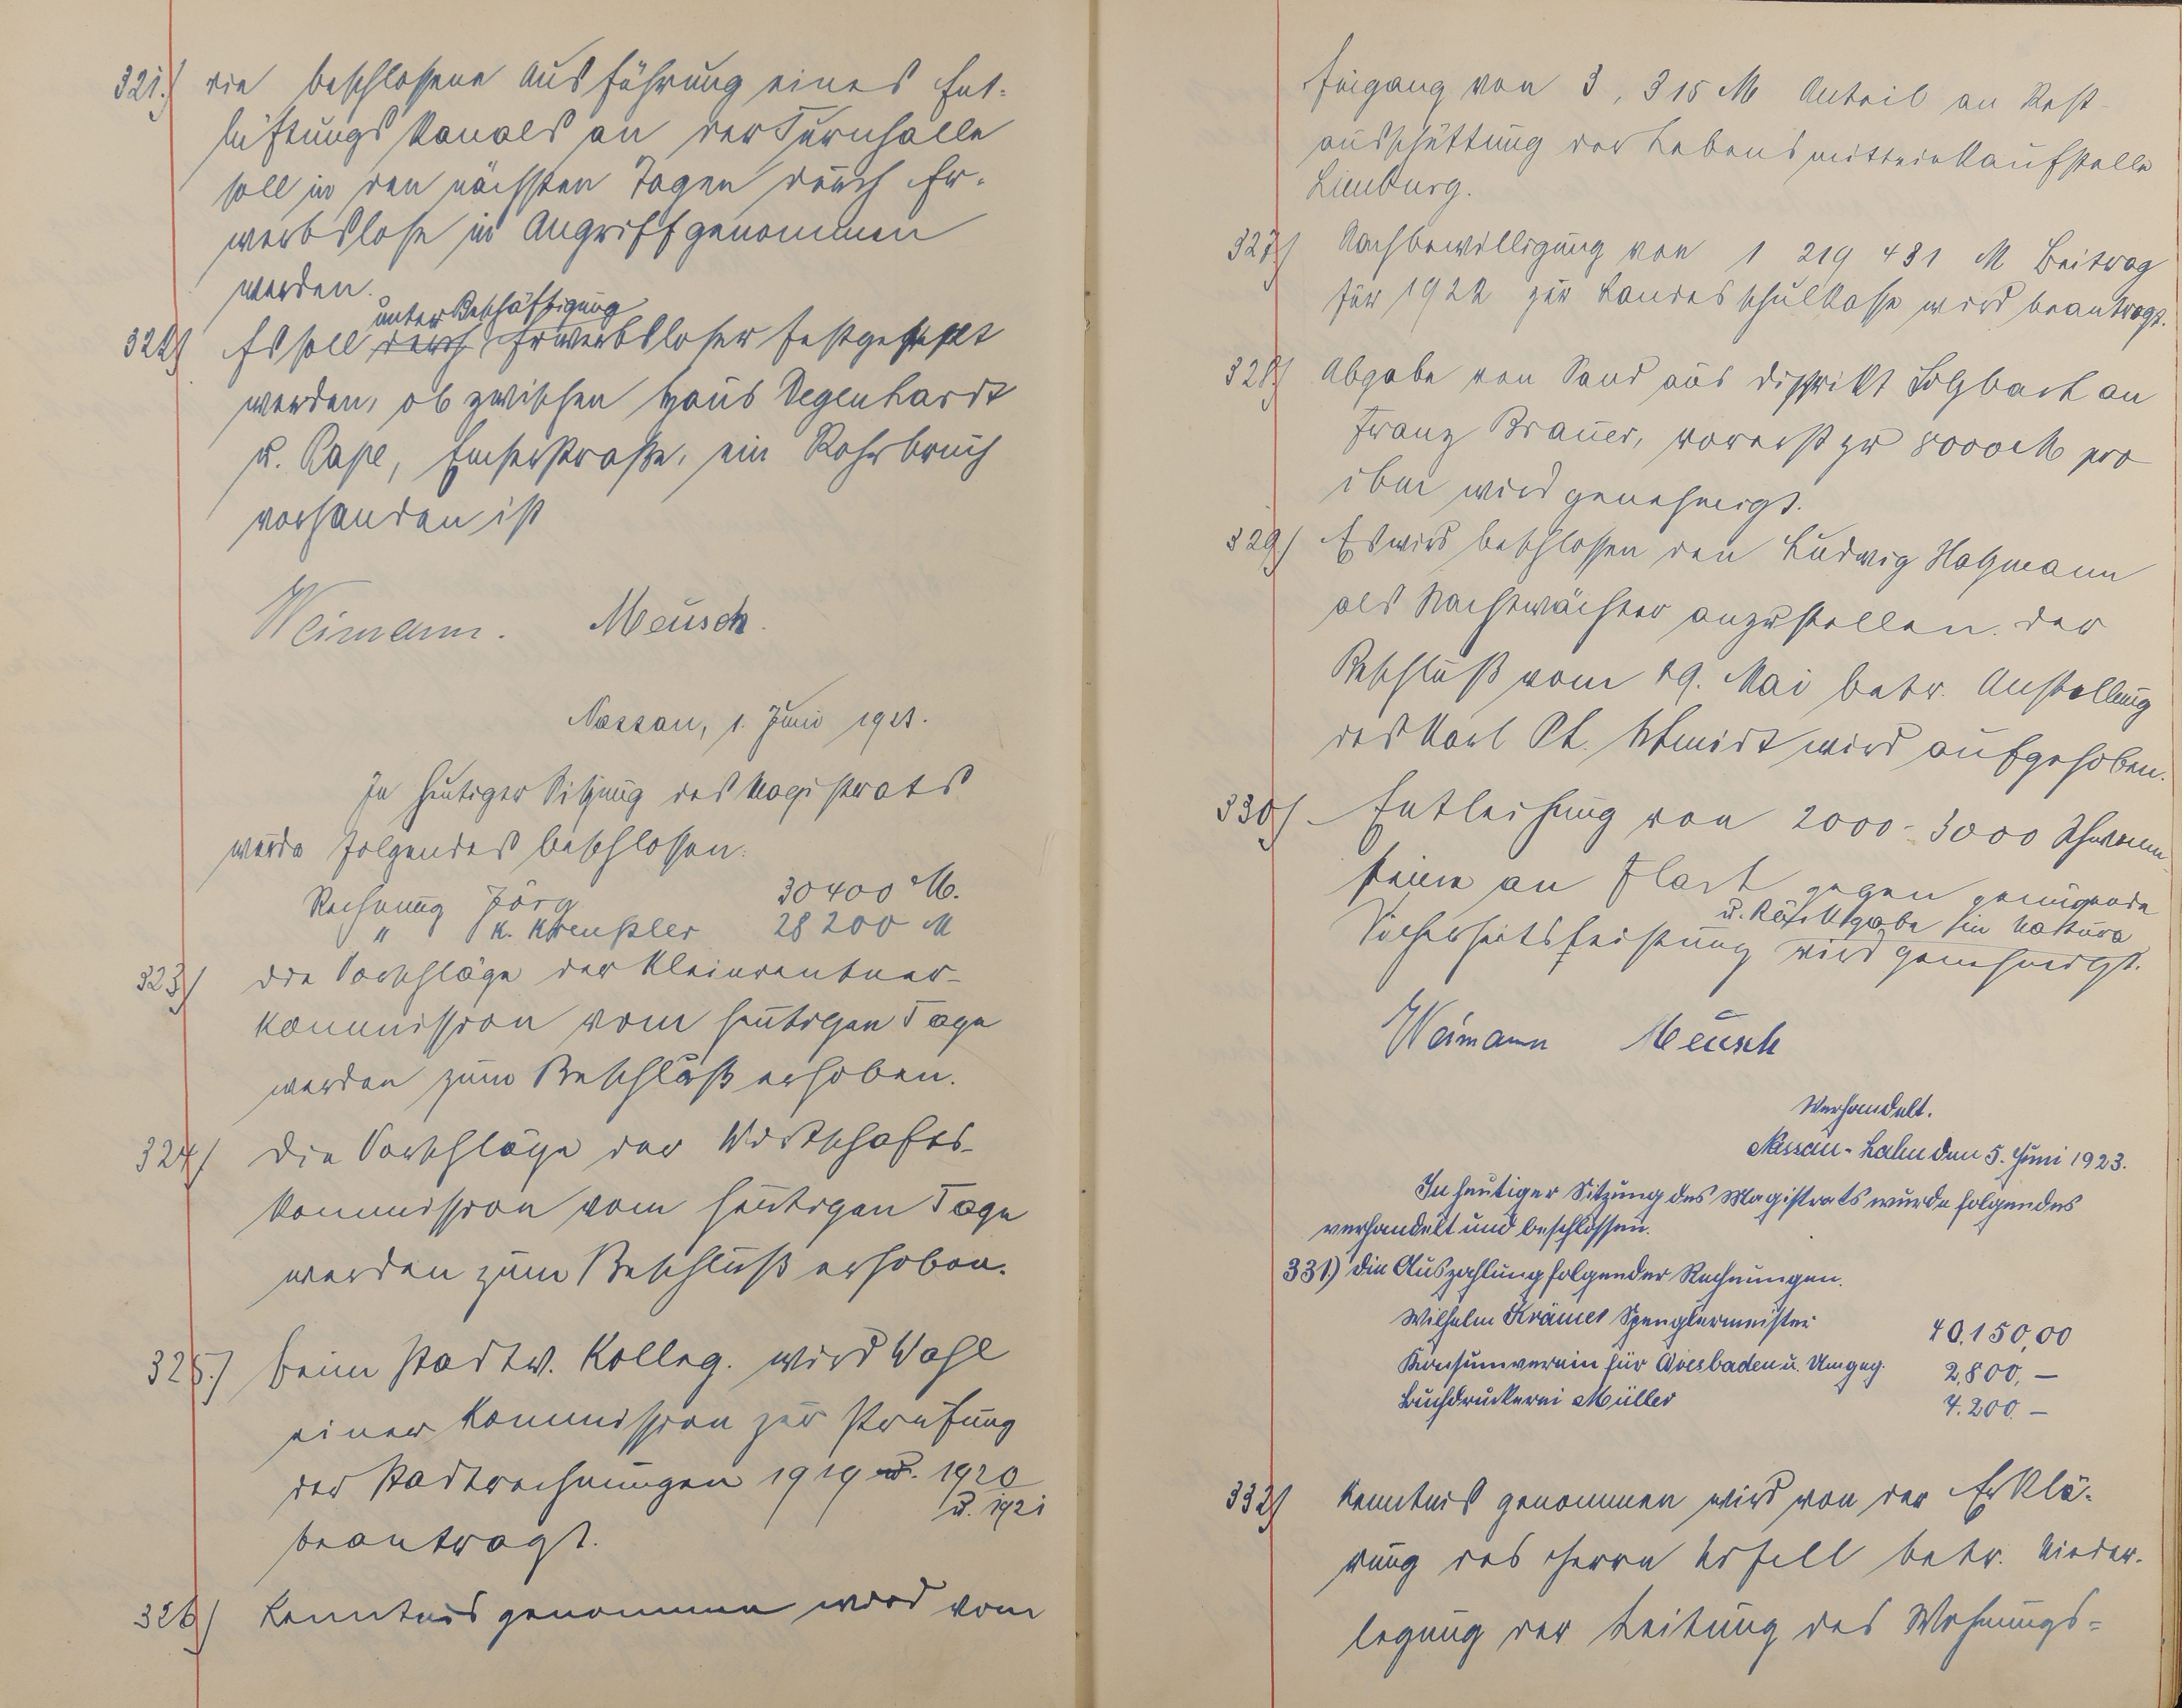 321.) die beschlossene Ausführung eines Ent-
lüftungskanals an der Turnhalle
soll in den nächsten Tagen durch Er-
werbslose in Angriff genommen
werden.
unter Beschäftigung
322) Es soll durch Erwerbsloser festgestellt
werden, ob zwischen Haus Degenhardt
u. Pape, Emserstraße, ein Rohrbruch
vorhanden ist
Weimann. Meusch.
Nassau, 1. Juni 1923.
In heutiger Sitzung des Magistrats
wurde folgendes beschlossen:
Rechnung Jörg 30400 M.
" K. 28200 M
323) die Vorschläge der Kleinrentner-
kommission vom heutigen Tage
werden zum Beschluß erhoben.
324) die Vorschläge der Wirtschafts-
kommission vom heutigen Tage
werden zum Beschluß erhoben.
325.) beim Stadtv. Kolleg. wird Wahl
einer Kommission zur Prüfung
der Stadtrechnungen 1919 u. 1920
u. 1921
beantragt.
326) Kenntnis genommen wird vom
Eingang von 3,315 M Anteil an Rest-
ausschüttung der Lebensmitteleinkaufstelle
Limburg.
327) Nachbewilligung von 1 219 431 M Beitrag
für 1922 zur Landesschulkasse wird beantragt.
328) Abgabe von Sand aus Distrikt Salzbach an
Franz Brauer, vorerst zu 8000 M pro
cbm wird genehmigt.
329) Es wird beschlossen den Ludwig Hofmann
als Nachtwächter anzustellen. der
Beschluß vom 29. Mai betr. Anstellung
des Karl Ph. Schmidt wird aufgehoben.
330) Entleihung von 2000-3000 Schwemm
steine an Flach gegen genügende
u. Rückgabe in natura
Sicherheitsleistung wird genehmigt.
Weimann Meusch
Verhandelt.
Nassau-Lahn den 5. Juni 1923.
In heutiger Sitzung des Magistrats wurde folgendes
verhandelt und beschlossen.
331) die Auszahlung folgender Rechnungen.
Wilhelm Krämer Spenglermeister 40.150,00
Konsumverein für Wiesbaden u. Umgeg. 2.800,—
Buchdruckerei Müller 4.200 —
332) Kenntnis genommen wird von der Erklä-
rung des Herrn Unfell betr. Nieder-
legung der Leitung des Wohnungs=